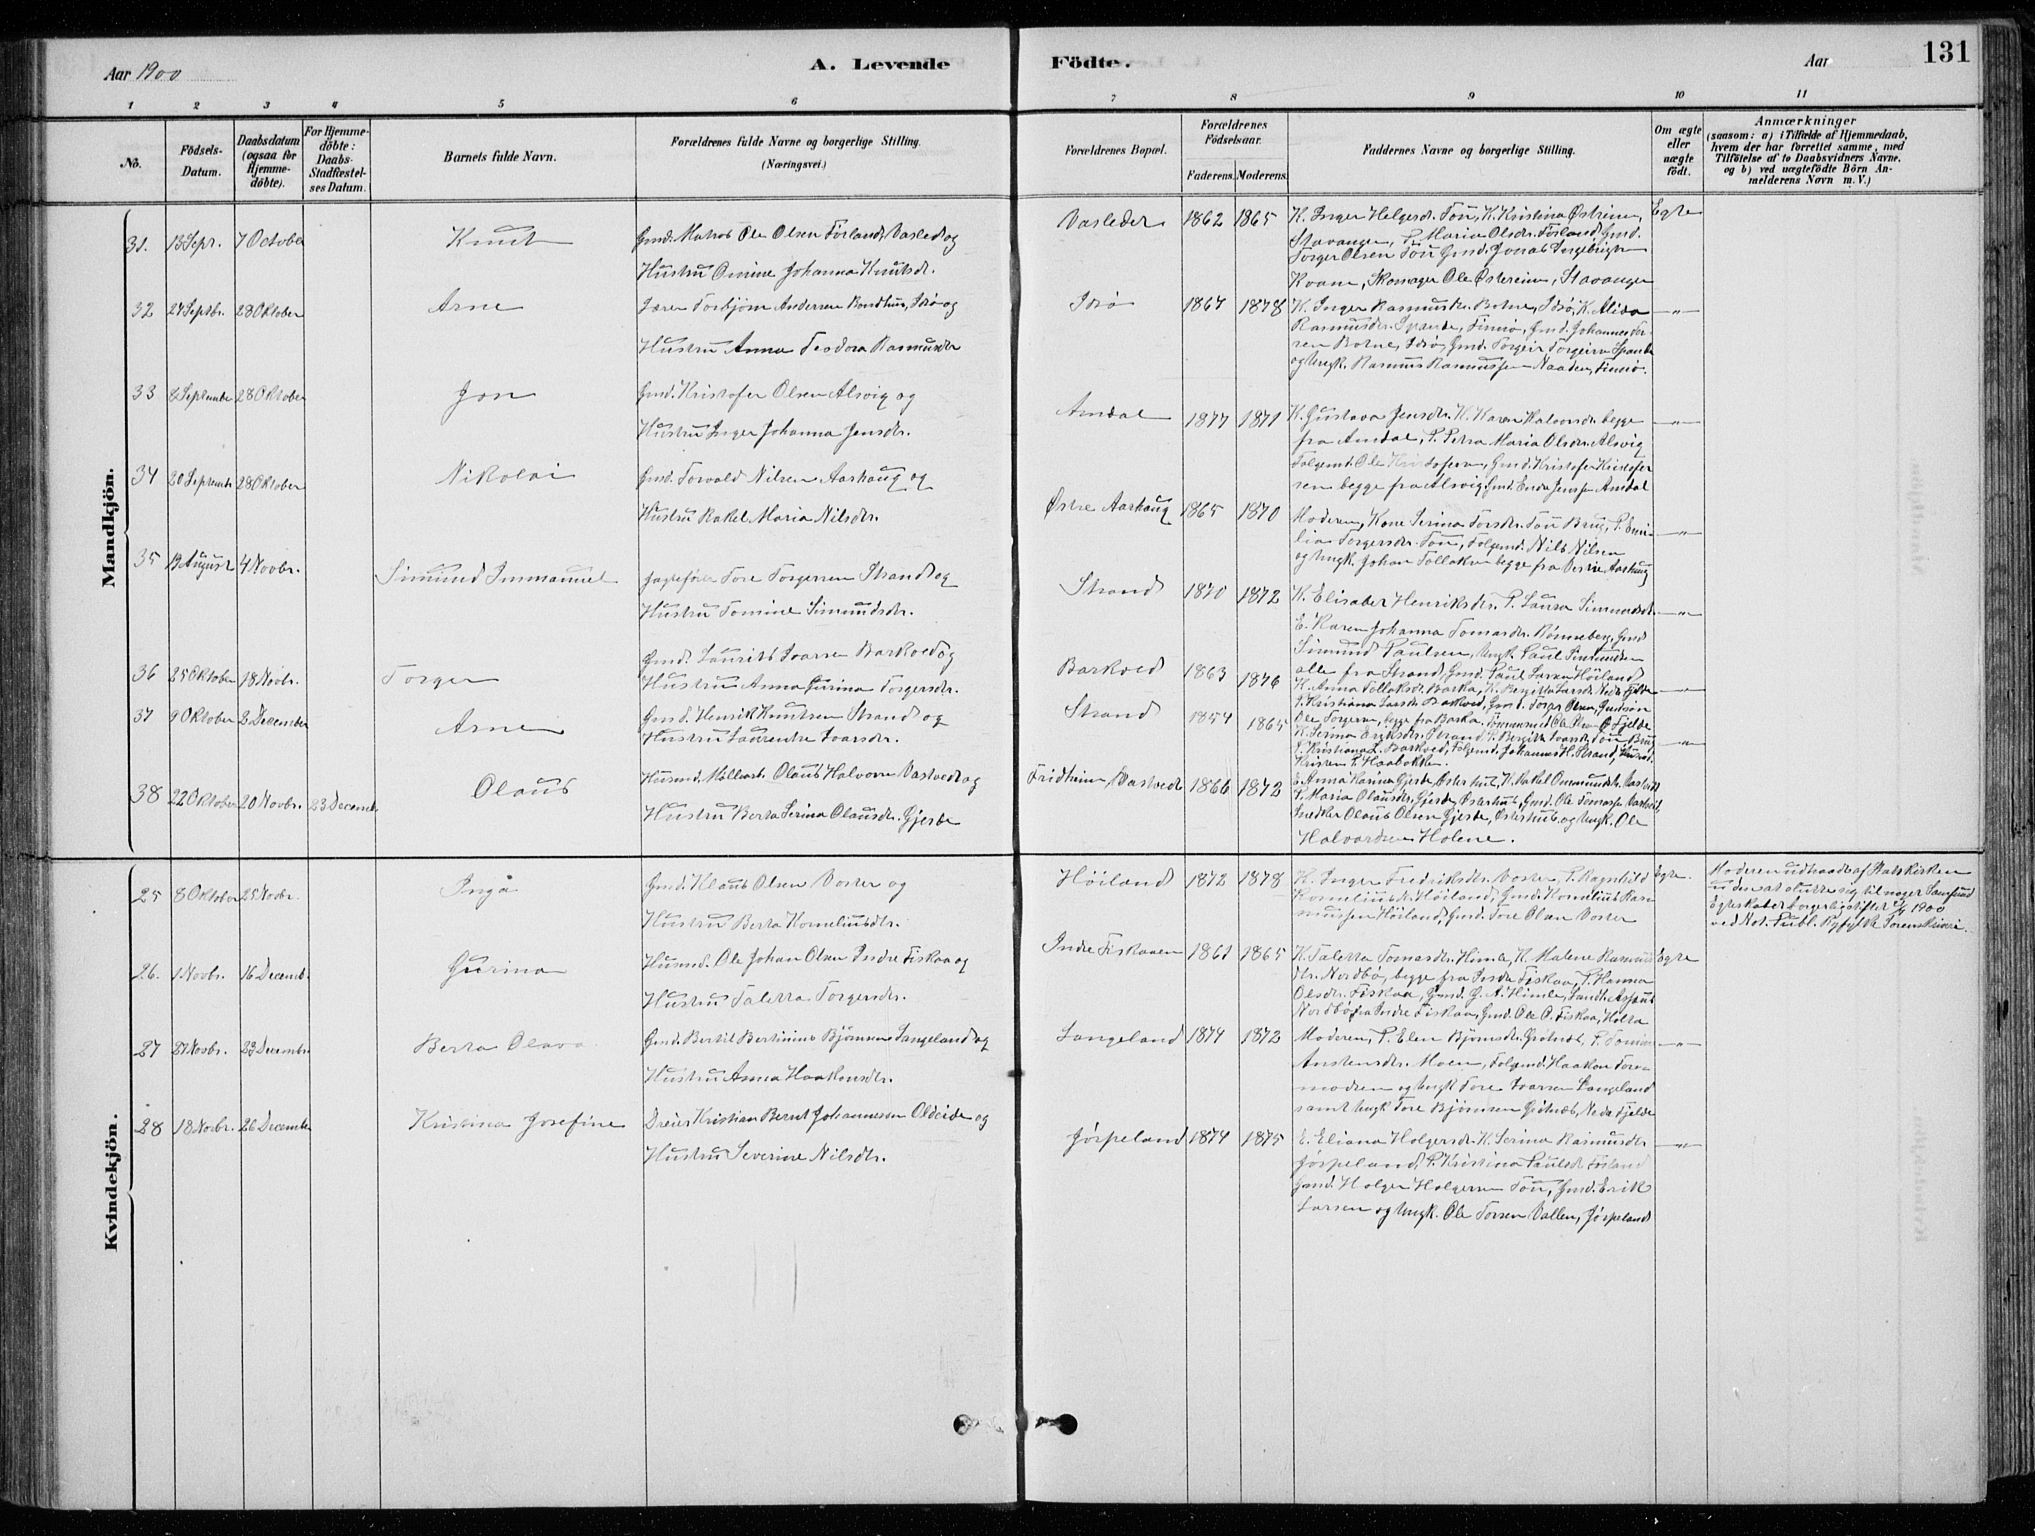 Aar 1900
A. Levende
Födte.
Aar
131
1 2 3 4 5 6 7 8 9 10 11
No.
Födsels-Datum.
Daabsdatum (ogsaa for Hjemme-döbte).
For Hjemme-döbte: Daabs-Stadfæstel-ses Datum.
Barnets fulde Navn.
Forældrenes fulde Navne og borgerlige Stilling.
(Næringsvei.)
Forældrenes Bopæl.
Forældrenes Födselsaar.
Faderens. Moderens.
Faddernes Navne og borgerlige Stilling.
Om ægte eller uægte födt.
Anmærkninger
(saasom: a) i Tilfælde af Hjemmedaab,
hvem der har forrettet samme, med
Tilföielse af to Daabsvidners Navne,
og b) ved uægtefödte Börn An-
melderens Navn m. V.)
Mandkjön.
31. 13 Sept. 7 October Knut Gmd. Matros Ole Olsen Förland, Vasled og
Hustru Omine Johanna Knutsdr.
Vasleder 1862 1865 K. Inger Helgesdr. Tou, K. Kristina Østreim,
Stavanger, P. Maria Olsdr. Förland, Gmd.
Torger Olsen Tou Gmd. Jonas Ingebrigtsen
Kvame, Skomager Ole Østereim, Stavanger
Egte
32 24 Septbr. 28 Oktober Arne Torbjörn Andersen Bondhus, Idsö og
Hustru Anna Teodora Rasmusdr
Idsö 1867 1878 K. Inger Rasmusdr. Botne, Idsö, K. Alida
Rasmusdr. Spande, Finnö, Gmd. Johannes
Botne, Idsö, Gmd. Torgeir Torgeirsen Spande
og Ungk. Rasmus Rasmussen Naaden, Finnö.
—"—
33 8 September 28 Oktober Jon Gmd. Kristofer Olsen Alsvig og
Hustru Inger Johanna Jensdr.
Amdal 1877 1871 K. Gustava Jensdr. K. Karen Halvorsdr. begge
fra Amdal, P. Petra Maria Olsdr. Alsvig
Folgemd. Ole Kristofersen, Gmd. Kristofer Kristofer
sen begge fra Alsvig, Gmd. Jensen Amdal
—"—
34 20 September 28 Oktober Nikolai Gmd. Torvald Nilsen Aarhaug og
Hustru Rakel Maria Nilsdr.
Østre Aarhaug 1865 1870 Moderen, Kone Serina Torsdr. Tou Brug, P. Emi-
lia Torgersdr. Tou, Folgemd. Nils Nilsen
og Ungk. Johan Tollaksen begge fra Østre Aarhaug
—"—
35 19 August 4 Novbr. Simund Immanuel Jagtefører Tore Torgersen Strand og
Hustru Tomine Simundsdr.
Strand 1870 1872 K. Elisabet Henriksdr. P. Laura Simundsdr.
E. Karen Johanna Tomasdr. Rönneberg, Gmd
Simund Paulsen, Ungk. Paul Simundsen
alle fra Strand, Gmd. Paul Larsen Höiland
—"—
36 25 Oktober 18 Novbr. Torger Gmd. Laurits Ivarsen Barkved og
Hustru Anna Gurina Torgersdr.
Barkved 1863 1876 K. Anna Tollaksdr. Barka, K. Bergitta Larsdr. Nedre Fjelde
P. Kristiana Larsdr. Barkved, Gmd. Torger Olsen,
Ole Torgersen, begge fra Barka, Tømmermd Ole Fjelde
—"—
37 9 Oktober 2 December Arne Gmd. Henrik Knutsen Strand og
Hustru Laurentse Ivarsdr.
Strand 1854 1865 K. Serina Eriksdr. Strand, K. Bergitte Ivarsdr. Tou Brug
P. Kristiana L. Barkved, Folgemd. Johannes H. Strand,
Kristen P. Haabokken.
—"—
38 22 Oktober 20 Novbr. 23 Decembr. Olaus Husmd. Mollearb. Olaus Halvorsen Vastvedt og
Hustru Berta Serina Olausdr. Gjerde
Fridheim, Vastvedt 1866 1872 E. Anna Karina Gjerde, Østerhus, K. Rakel Ommundsdr. Vastvedt
P. Maria Olausdr. Gjerde, Østerhus, Gmd. Ole Tomassen Vastvedt,
Snedker Olaus Olsen Gjerde, Østerhus og Ungk. Ole
Halvardsen Holene.
Kvindekjön.
25 8 Oktober 25 Novbr. Inga Gmd. Klaus Olsen Voster og
Hustru Berta Korneliusdtr.
Höiland 1872 1878 K. Inger Fredriksdtr. Voster, P. Ragnhild
Korneliusdr. Höiland, Gmd. Kornelius Ras-
mussen Höiland, Gmd. Tore Olsen Voster
Egte.
Moderen udtraadt af Statskirken
uden at slutte sig til noget Samfund
Ægteskabet borgerlig stiftet 1900
ved Not. Publ. Ryfylke Sorenskriveri.
26. 1 Novbr. 16 Decemb. Gurina Husmd. Ole Johan Olsen Indre Fiskaa og
Hustru Taletta Torgersdr.
Indre Fiskaaen 1861 1865 K. Taletta Tomasdr. Himle, K. Malene Rasmus
dtr. Nordbö, begge fra Indre Fiskaa, P. Hanna
Olsdr. Fiskaa, Gmd. G. A. Himle, Landh. Aslaus
Nordbö fra Indre Fiskaa, Gmd. Ole O. Fiskaa, Holta
Egte
27 21 Novbr. 23 Decembr Berta Olava Gmd. Bertil Bertinius Björnsen Langeland og
Hustru Anna Haakonsdtr.
Langeland 1874 1872 Moderen, P. Elen Björnsdr. Grötnes, P. Tomine
Anstensdtr. Moen, Folgemd. Haakon Tore-
modsen og Ungk Tore Ivarsen Langeland
samt Ungk Tore Björnsen Grötnes, Nedre Fjelde
—"—
28 18 Novbr. 26 December Kristina Josefine Dreier Kristian Bernt Johannessen Oldeide og
Hustru Severine Nilsdtr.
Jörpeland 1874 1875 E. Eliana Holgersdr. K. Serina Rasmusdtr
Jörpeland, P. Kristina Paulsdr Förland
Gmd. Holger Holgersen Tou, Gmd. Erik
Larsen og Ungk. Ole Torsen Vallen, Jörpeland
—"—